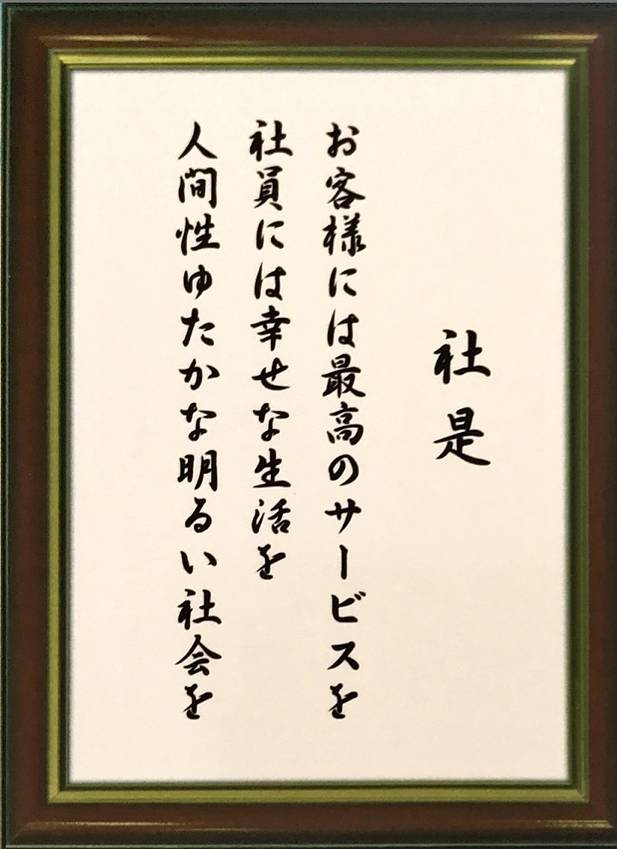 社是
お客様には最高のサービスを
社員には幸せな生活を
人間性ゆたかな明るい社会を